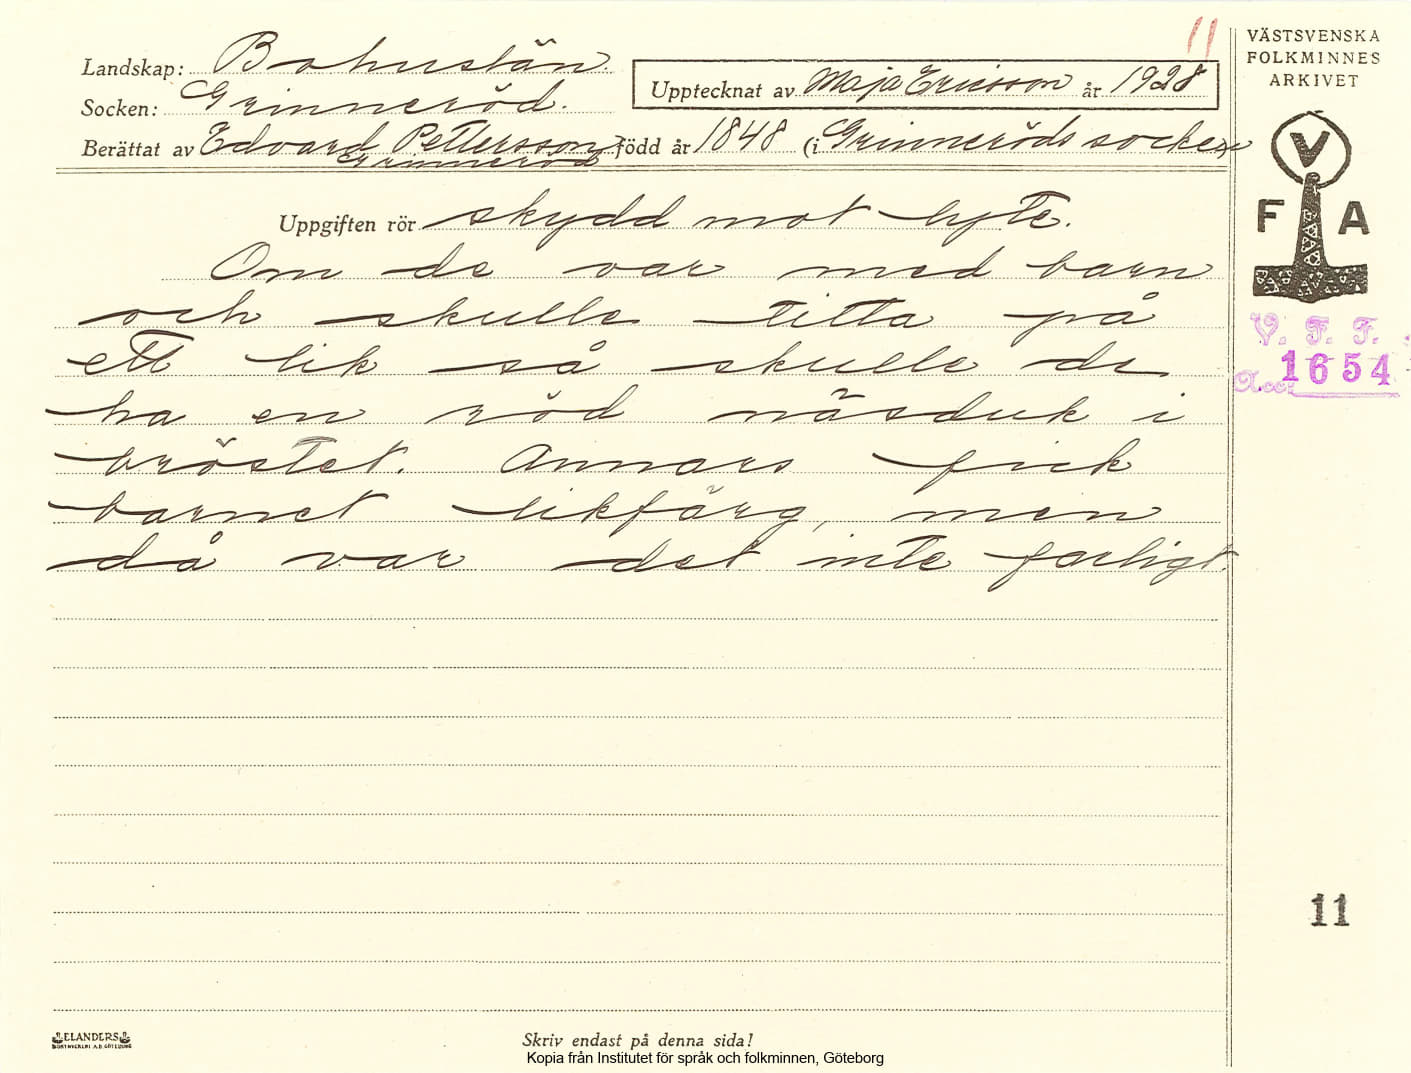 11
VÄSTSVENSKA
FOLKMINNES
ARKIVET
Landskap: Bohuslän.
Socken: Grinneröd.
Upptecknat av Maja Ericsson år 1928
Berättat av Edvard Pettersson född år 1848 (i Grinneröds socken)
Grinneröd
V
F A
Uppgiften rör skydd mot lyte.
Om de var med barn
och skulle titta på
ett lik så skulle de
ha en röd näsduk i
bröstet. Annars fick
barnet likfärg, men
då var det inte farligt.
V. F. F.
Acc. 1654
11
ELANDERS
BOKTRYCKERI A.B. GÖTEBORG
Skriv endast på denna sida!
Kopia från Institutet för språk och folkminnen, Göteborg